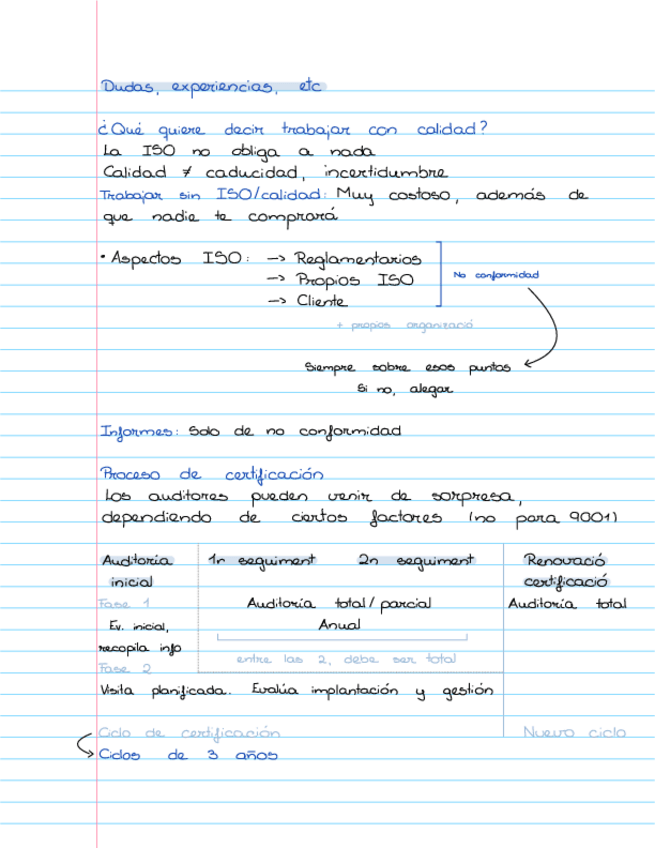 Dudas, experiencias, etc
¿Qué quiere decir trabajar con calidad?
La ISO no obliga a nada
Calidad ≠ caducidad, incertidumbre
Trabajar sin ISO/calidad: Muy costoso, además de
que nadie te comprará
• Aspectos ISO: → Reglamentarios
→ Propios ISO
→ Cliente
No conformidad
+ propios organizació
Siempre sobre esos puntos
Si no, alegar
Informes: Solo de no conformidad
Proceso de certificación
Los auditores pueden venir de sorpresa,
dependiendo de ciertos factores (no para 9001)
Auditoría inicial
1r seguiment 2n seguiment
Renovació certificació
Fase 1
Auditoría total/parcial
Auditoría total
Ev. inicial,
Anual
recopila info
entre las 2, debe ser total
Fase 2
Visita planificada. Evalúa implantación y gestión
Ciclo de certificación
Nuevo ciclo
Ciclos de 3 años